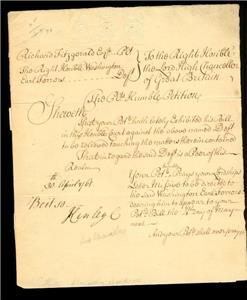 Richard Fitzgerald Esqr. Plt
The Right Honble Washington
Earl Ferrers Deft
To the Right Honble
the Lord High Chancellor
of Great Britain
The Plts Humble Petition
Sheweth
That your Petr hath lately Exhibited his Bill
in this Honble Court against the above named Deft
to be relieved touching the matters therein contained
That in regard the said Deft is a Peer of this
Realm
Your Petr Prays your Lordships
Letter missive to be directed to
the said Washington Earl Ferrers
desiring him to appear to your
Petrs Bill the day of may
next
And your Petr shall ever pray &c
30 April 1761
Be it so
Henley C